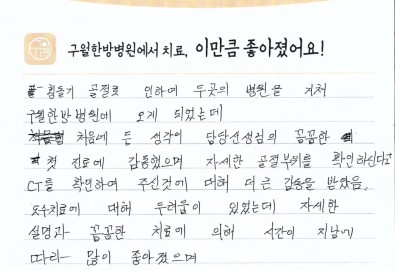 구월한방병원에서 치료, 이만큼 좋아졌어요!
힘들기 골절로 인하여 두곳의 병원을 거쳐
구월한방병원에 오게 되었는데
처음에 든 생각이 담당선생님의 꼼꼼한
첫 진료에 감동했으며 자세한 골절부위를 확인하신다고
CT를 확인하여 주신것에 대해 더 큰 감동을 받았음.
도수치료에 대해 두려움이 있었는데 자세한
설명과 꼼꼼한 치료에 의해 시간이 지남에
따라 많이 좋아졌으며